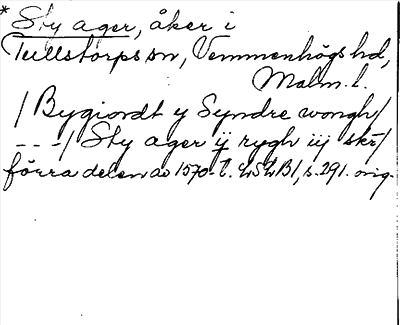 * Sty ager, åker i
Tullstorps sn, Vemmenhögs hd,
Malm. l.
/ Bygiordt y Syndre wongh /
- - - / Sty ager ij rygh iij skr /
förra delen av 1570-t. LSLB1, s. 291. orig.